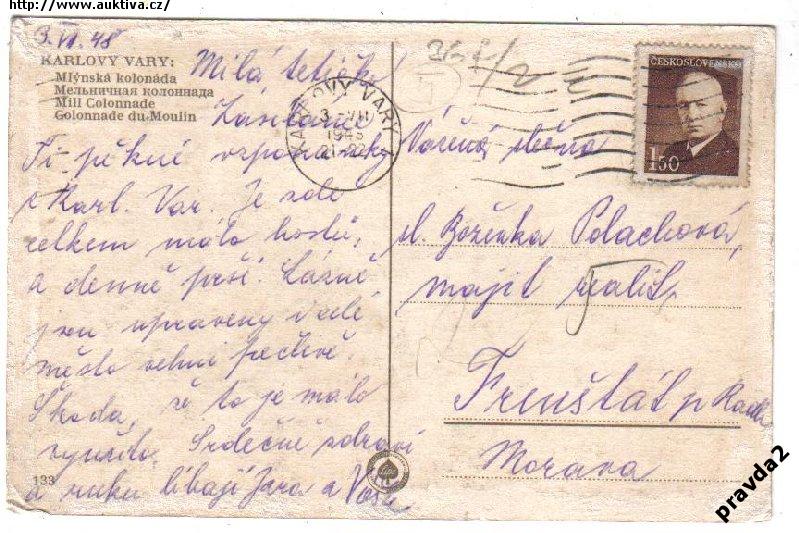 http://www.auktiva.cz/
3. VII. 48
KARLOVY VARY:
Mlýnská kolonáda
Мельничная колоннада
Mill Colonnade
Colonnade du Moulin
Milá tetičko!
Ti pěkné vzpomínky
z Karl. Var. Je zde
celkem málo hostů,
a denně prší. Lázně
jsou upraveny i celé
město velmi pečlivě.
Škoda, že to je málo
využito. Srdečně zdraví
a ruku líbají Jara a
133
KARLOVY VARY
3. VII
1948
ČESKOSLOVENSKO
1.50
Vážená slečna
sl. Boženka Polachová,
majit. realit,
Frenštát p Radh
Morava
pravda2